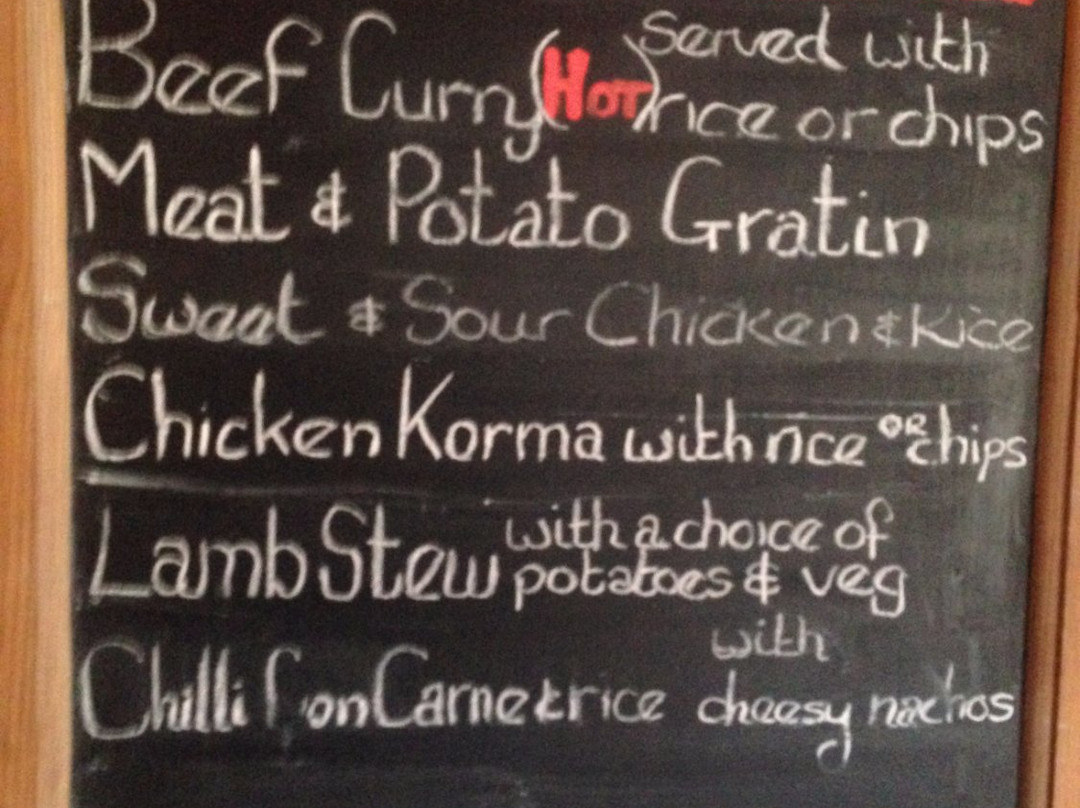 Beef Curry (HOT) served with
rice or chips
Meat & Potato Gratin
Sweet & Sour Chicken & Rice
Chicken Korma with rice OR chips
Lamb Stew with a choice of
potatoes & veg
Chilli Con Carne & rice with
cheesy nachos